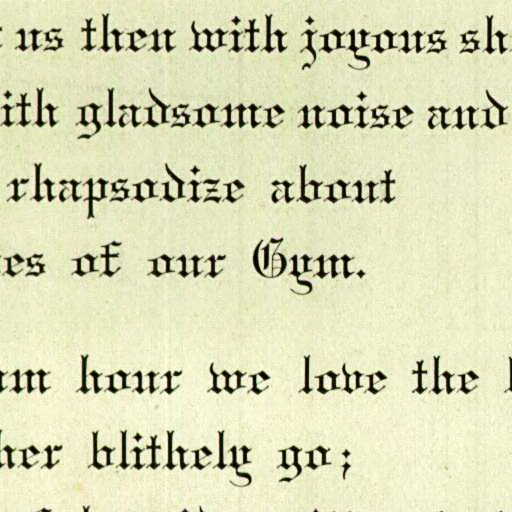 us then with joyous
gladsome noise and
rhapsodize about
of our Gym.
hour we love the
blithely go;